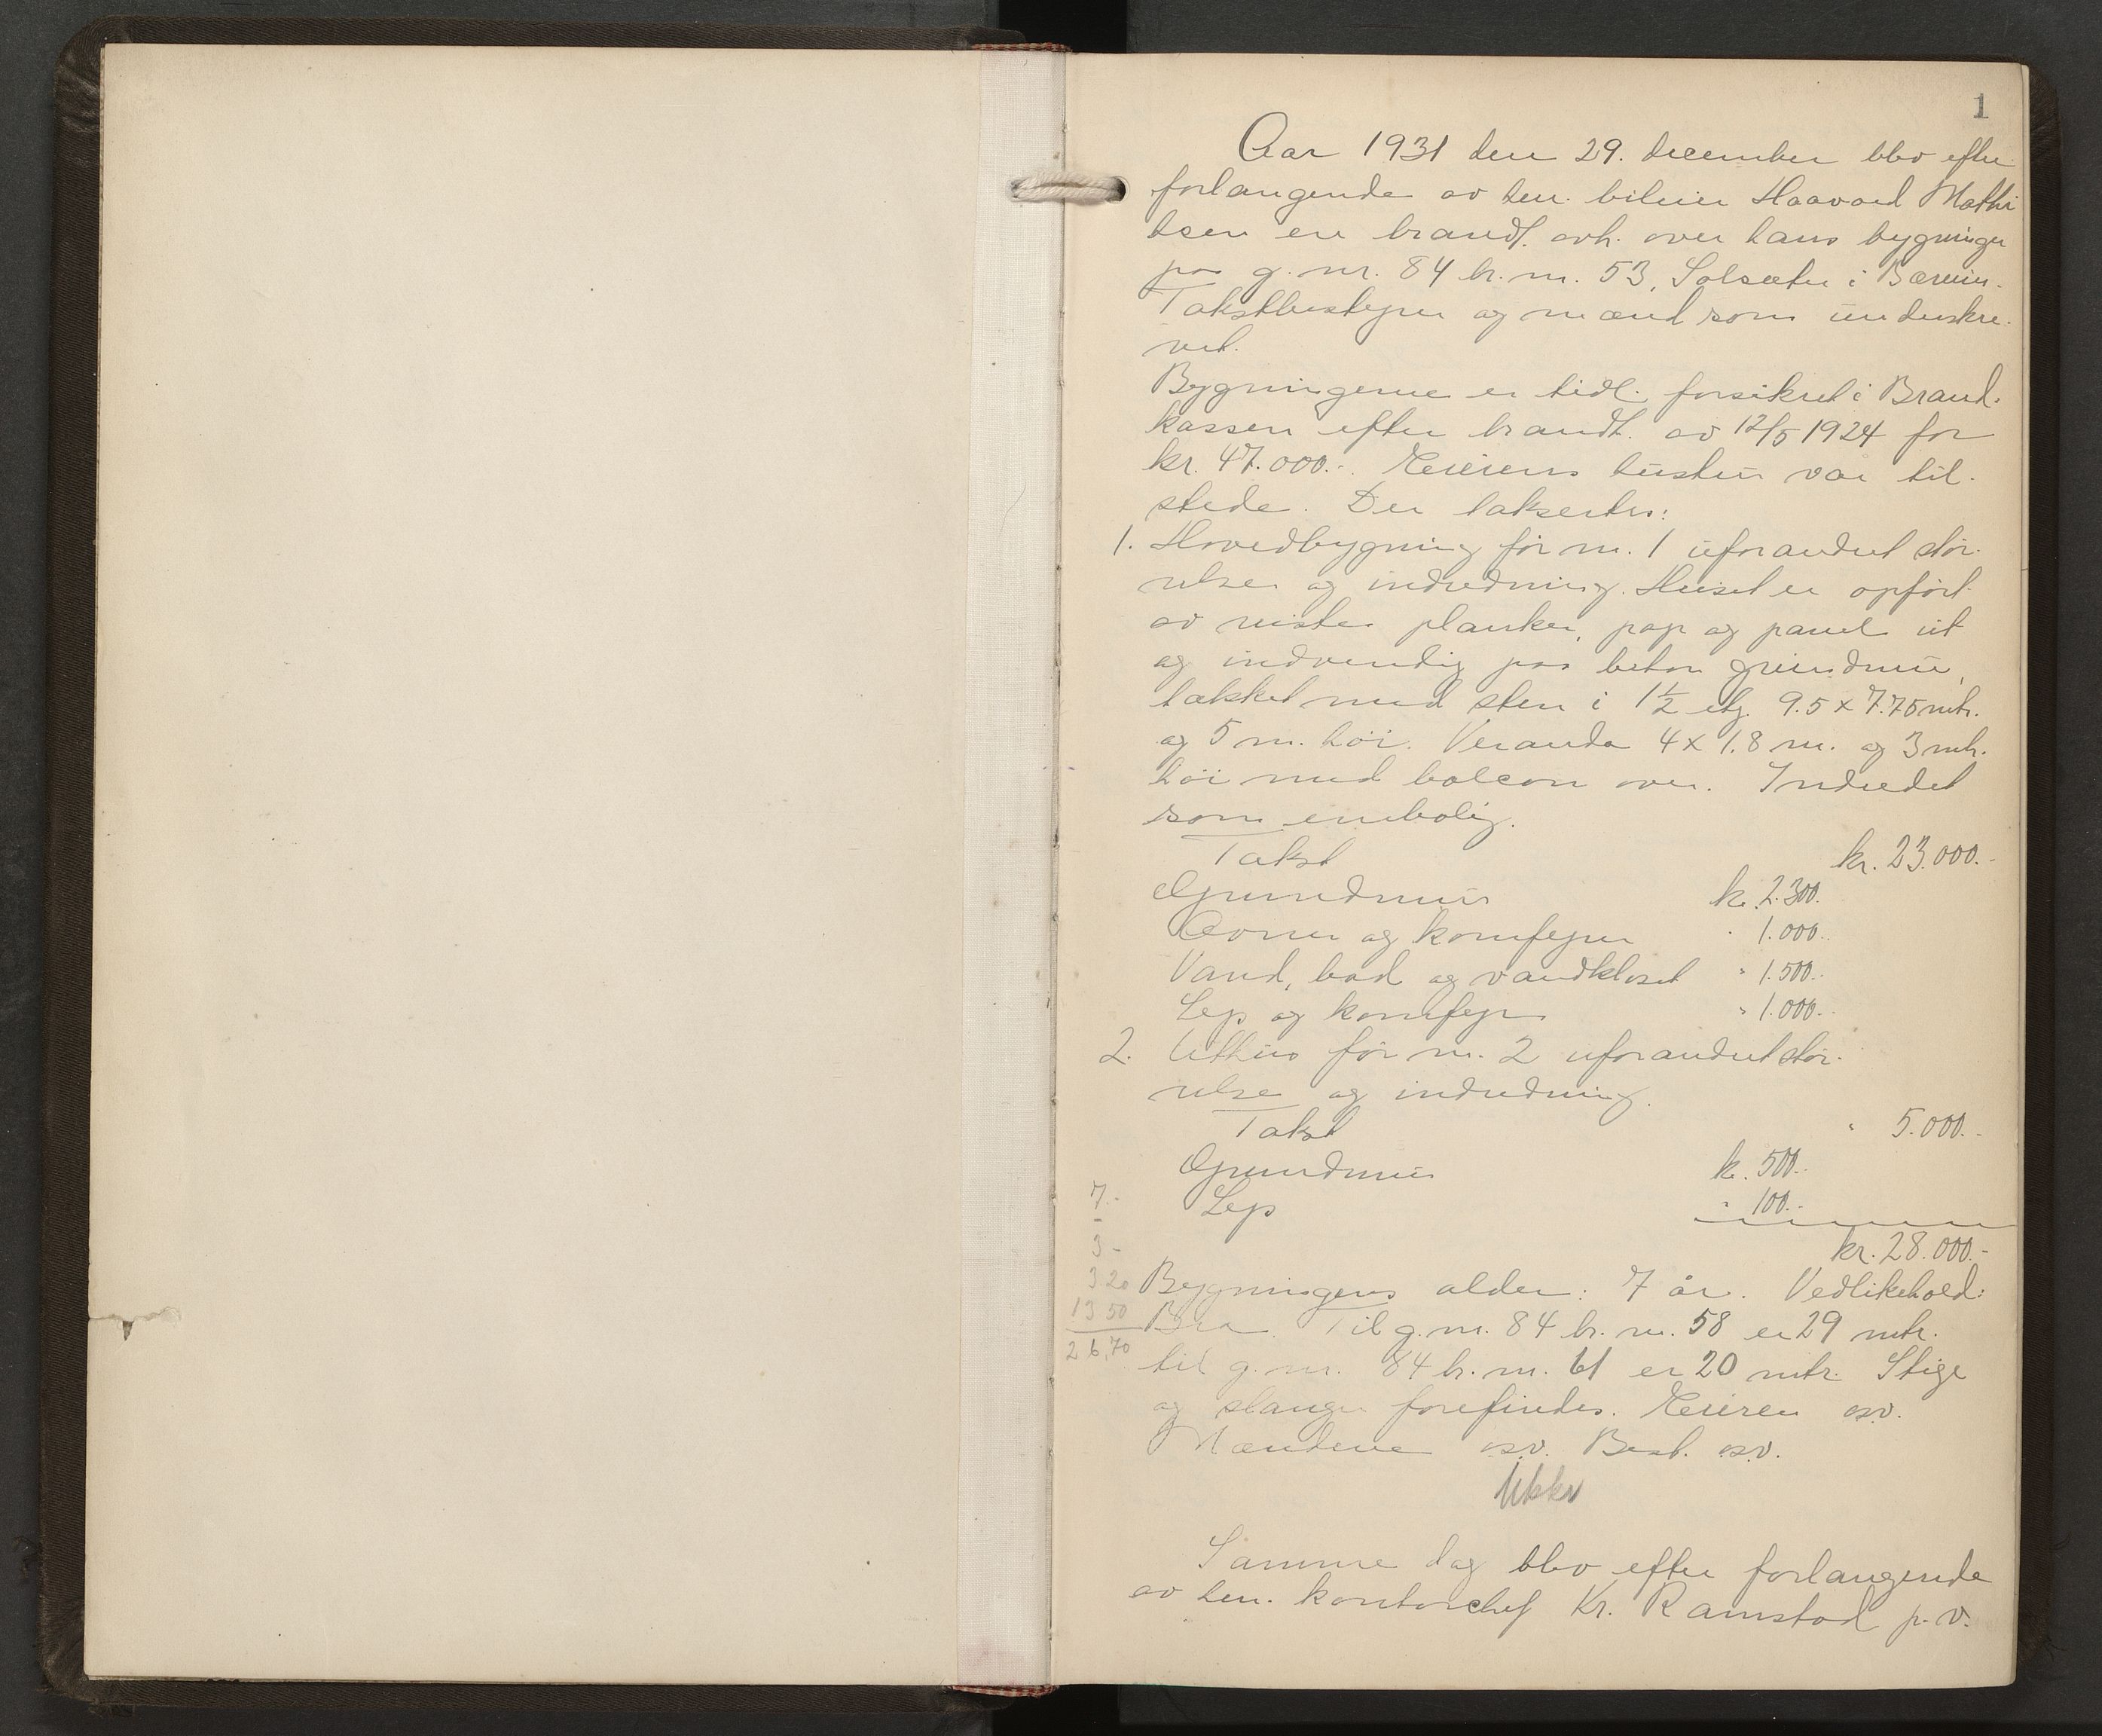 1
Aar 1931 den 29. december blev efter
forlangende av herr. bileier Haavard Mathi
esen en brandt. avh. over hans bygninger
paa g. nr. 84 br. nr. 53, Solsæter i Bærum.
Takstbestyrer og mænd som underskre-
vet.
Bygningerne er tidl. forsikret i Brand-
kassen efter brandt. av 12/5 1924 for
kr. 47.000.- Eierens hustru var til-
stede. Der taksertes:
1. Hovedbygning før nr. 1 uforandret stør-
relse og indredning. Huset er opført
av reiste planker, pap og panel ut
og indvendig paa beton grundmur,
tækket med sten i 1½ etg. 9.5 x 7.75 mtr.
og 5 m. høi. Veranda 4 x 1.8 m. og 3 mtr.
høi med balcon over. Indredet
som enebolig.
Takst kr. 23.000.-
Grundmur kr. 2.300.-
Ovner og komfyrer " 1.000.-
Vand, bad og vandkloset " 1.500.-
Lys og komfyr " 1.000.-
2. Uthus før nr. 2 uforandret stør-
relse og indredning.
Takst " 5.000.-
Grundmur kr. 500.-
7.-
Lys " 100.-
3-
kr. 28.000.-
3 20
Bygningens alder: 7 år. Vedlikehold:
13 50
Bra. Til g. nr. 84 br. nr. 58 er 29 mtr.
26,70
til g. nr. 84 br. nr. 61 er 20 mtr. Stige
og slange forefindes. Eieren osv.
Mændene osv. Best. osv.
Samme dag blev efter forlangende
av herr. kontorchef Kr. Ramstad p. v.